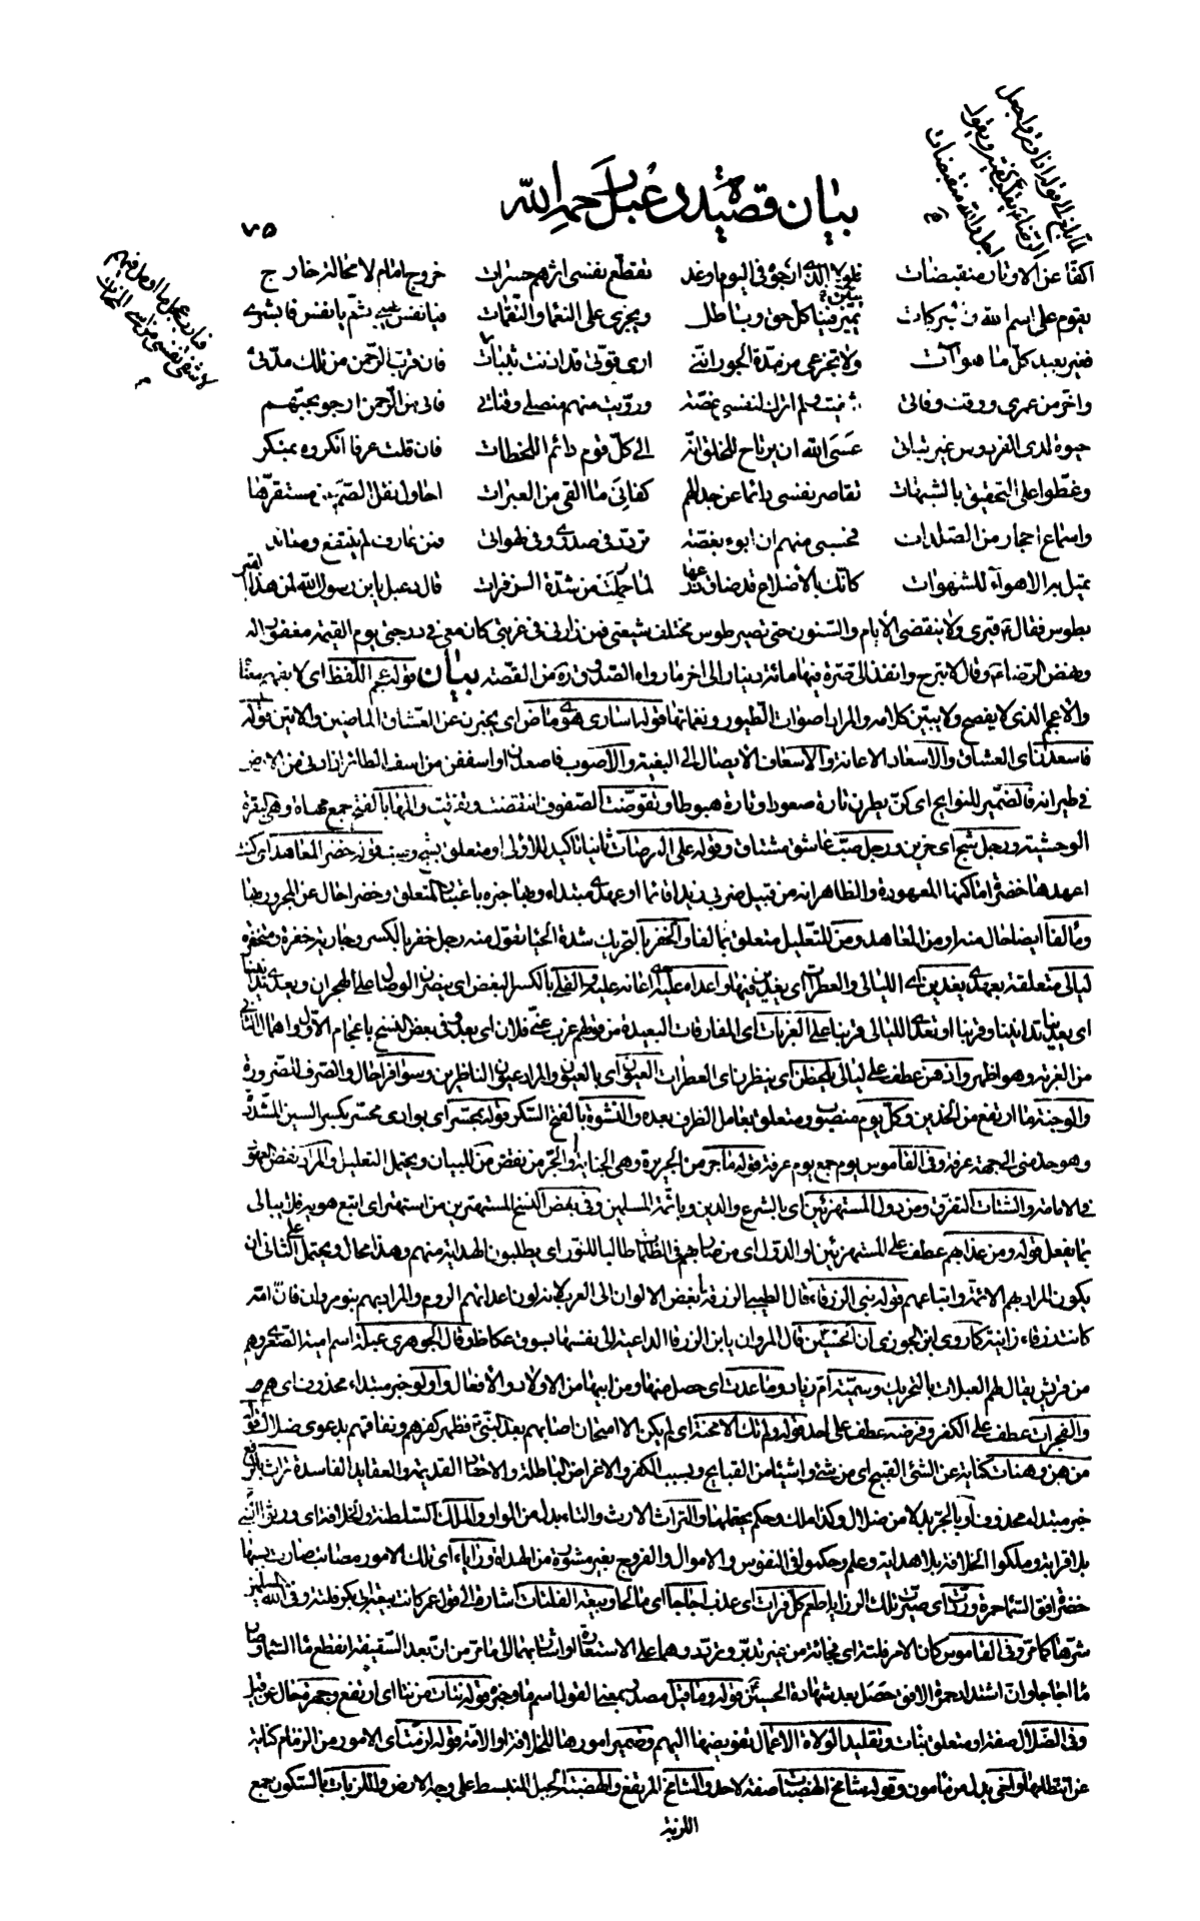 بيان قصيدة دعبل رحمه الله
٧٥
اكفّا عن الاوتار منقبضات فلولا الذى ارجوه فى اليوم او غد تقطّع نفسى اثرهم حسرات خروج امام لا محالة خارج
يقوم على اسم الله والبركات يميّز فينا كلّ حق وباطل ويجزى على النعماء والنّقمات فيا نفس طيبى ثمّ يا نفس فابشرى
فغير بعيد كلّ ما هو آت ولا تجزعى من مدّة الجور انّنى ارى قوّتى قد اذنت بثبات فان قرب الرّحمن من تلك مدّتى
واخّر من عمرى ووقت وفاتى شفيت ولم اترك لنفسى غصّة وروّيت منهم منصلى وقناتى فانى من الرّحمن ارجو بحبّهم
حيوة لدى الفردوس غير تباتى عسى الله ان يرتاح للخلق انّه الى كلّ قوم دائم اللحظات فان قلت عرفا انكروه بمنكر
وغطّوا على التحقيق بالشبهات تقاصر نفسى دائما عن جدالهم كفانى ما القى من العبرات احاول نقل الصّم عن مستقرّها
واسماع احجار من الصّلدات فحسبى منهم ان ابوء بغصّة تردّد فى صدرى وفى لهواتى فمن عارف لم ينتفع ومعاند
تميل به الاهواء للشهوات كانّك بالاضلاع قد ضاق ذرعها لما حمّلت من شدّة الزفرات قال دعبل يابن رسول الله لمن هذا القبر
بطوس فقال ع قبرى ولا ينقضى الايام والسّنون حتى تصير طوس مختلف شيعتى فمن زارنى فى غربتى كان معى فى درجتى يوم القيمة مغفورا له
ونهض الرّضا ع وقال لا تبرح وانفذ الى صرّة فيها مائة دينار الى اخر ما رواه الصّدوق ره من القصّة بيان قوله عجم اللّفظ اى لا يفهم معناه
والاعجم الذى لا يفصح ولا يبيّن كلامه والمراد اصوات الطّيور ونغماتها قوله اسارى هوى ماض اى يخبرن عن العشاق الماضين والاتين قوله
فاسعدن اى العشاق والاسعاد الاعانة والاسعاف الايصال الى البغية والاصوب فاصعدن او اسففن من اسفّ الطائر اذا دنى من الارض
فى طيرانه فالضّمير للنوايح اى كنّ يطرن تارة صعودا وتارة هبوطا وتقوّضت الصّفوف انتقضت وتفرّقت والمها بالفتح جمع مهاة وهى البقرة
الوحشية ورجل شج اى حزين ورجل صبّ عاشق مشتاق وقوله على العرصات ثانيا تاكيد للاولى او متعلق بشج وصبّ قوله خضر المعاهد اى كنت
اعهدها خضرة اماكنها المعهودة والظاهر انه من قبيل ضربى زيدا قائما او عهدى مبتداء وبها خبره باعتبار المتعلق وخضرا حال عن المجرور بها
ومألفا ايضا حال منه او من المعاهد ومن للتعليل متعلق بمألفا والخفر بالتحريك شدة الحياء تقول منه رجل خفر بالكسر وجارية خفرة ومتخفرة
ليالى متعلقة بعهدى يعدين اى الليالى والعطرات اى يعدين فيها واعداه عليه اعانه عليه والقلى بالكسر البغض اى ينصرن الوصل على الهجران ويعدى تدانينا
اى يعدينا تدانينا وقربنا او تعدى الليالى قربنا على الغربات اى المفارقات البعيدة من قولهم عزب عنى فلان اى بعد وفى بعض النسخ باعجام الاول واهمال الثانى
من الغربة وهو اظهر واذ هنّ عطف على ليالى يلحظن اى ينظرن اى العطرات العيون اى بالعيون والمراد عيون الناظرين وسوافر حال والصّرف للضّرورة
والوجنة ما ارتفع من الخدين وكلّ يوم منصوب ومتعلق بعامل الظرف بعده والنشوة بالفتح السّكر قوله بمحسّر اى بوادى محسّر بكسر السين المشدّدة
وهو حدّ منى الى جهة عرفة وفى القاموس يوم جمع يوم عرفة قوله ما جرّ من الجريرة وهى الجناية والجرّ من نقض من للبيان ويحتمل التعليل والمراد نقض العهود
فى الامامة والشّتات التفرّق ومن دول المستهزئين اى بالشرع والدين وبائمّة المسلمين وفى بعض النسخ المستهترين من استهتر اى اتبع هويه فلا يبالى
بما يفعل قوله ومن عداهم عطف على المستهزئين او الدول اى من صار بهم فى الظلمات طالبا للنور اى يطلبون الهداية منهم وهذا محال ويحتمل على الثانى ان
يكون المراد بهم الائمّة واتباعهم قوله بنى الزرقاء قال الطيبى الزرقة ابغض الالوان الى العرب لانه لون اعدائهم الروم والمراد بهم بنو مروان فانّ امّه
كانت زرقاء زانية كما روى ابن الجوزى ان الحسين ع قال لمروان يابن الزرقاء الداعية الى نفسها بسوق عكاظ وقال الجوهرى عبلة اسم امية الصّغرى وهم
من قريش يقال لهم العبلات بالتحريك وسميّة امّ زياد وما عدت اى حصل منها ومن ابيها من الاولاد والافعال واولو خبر مبتداء محذوف اى هم
والفجرات عطف على الكفر وفرضه عطف على احد قوله ولم تك الا محنة اى لم يكن الا امتحان اصابهم بعد النّبى ص فظهر كفرهم ونفاقهم بدعوى ضلال قوله
من هن وهنات كناية عن الشئ القبيح اى من شئ واشياء من القبايح وبسبب الكفر والاغراض الباطلة والاحقاد القديمة والعقايد الفاسدة تراث بالرفع
خبر مبتداء محذوف او بالجرّ بدلا من ضلال وكذا ملك وحكم يحتملهما والتراث الارث والتاء بدل من الواو والملك السّلطنة والخلافة اى ورثوا النّبى
بلا قرابة وملكوا الخلافة بلا هداية وعلم وحكموا فى النفوس والاموال والفروج بغير مشورة من الهداة رزايا اى تلك الامور مصائب صارت بسببها
خضرة افق السّماء حمرة وردّت اى صيّرت تلك الرزايا طعم كلّ فرات اى عذب اجاجا اى مالحا وبيعة الفلتات اشارة الى قول عمر كانت بيعة ابى بكر فلتة وقى الله المسلمين
شرّها كما مرّ وفى القاموس كان الامر فلتة اى فجائة من غير تدبّر وتردّد وهما على الاستعارة
ماء اجاجا وانّ اشتداد حمرة الافق حصل بعد شهادة الحسين ع قوله وما قيل مصدر بمعنى القول
وفى الضّلال صفة او متعلق بتات وتقليد الولاة الاعمال تفويضها اليهم وضمير امورها للخلافة او الامّة قوله لزمّت اى الامور من الزمام كناية
عن انتظامها ولهى بدل من مأمون وقوله شامخ الهضبات صفة لاحد والشامخ المرتفع والهضبة الجبل المنبسط على وجه الارض واللزبات بالسكون جمع
اللزبة